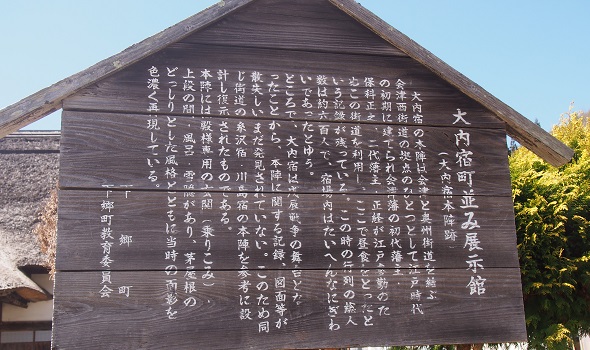 大内宿町並み展示館
（大内宿本陣跡）
大内宿の本陣は会津と奥州街道を結ぶ
会津西街道の拠点のひとつとして江戸時代
の初期に建てられ会津藩の初代藩主・
保科正之、二代藩主・正経が江戸参勤のた
めこの街道を利用し、ここで昼食をとったと
いう記録が残っている。この時の行列の総人
数は約六百人で、宿場内はたいへんなにぎわ
いであったという。
ところで、大内宿は戊辰戦争の舞台とな
ったことから、本陣に関する記録、図面等が
散失しいまだ発見されていない。このため同
じ街道の糸沢宿・川島宿の本陣を参考に設
計し復元されたものである。
本陣には殿様専用の玄関（乗りこみ）、
上段の間、風呂、雪隠があり、茅屋根の
どっしりとした風格とともに当時の面影を
色濃く再現している。
下郷町
下郷町教育委員会